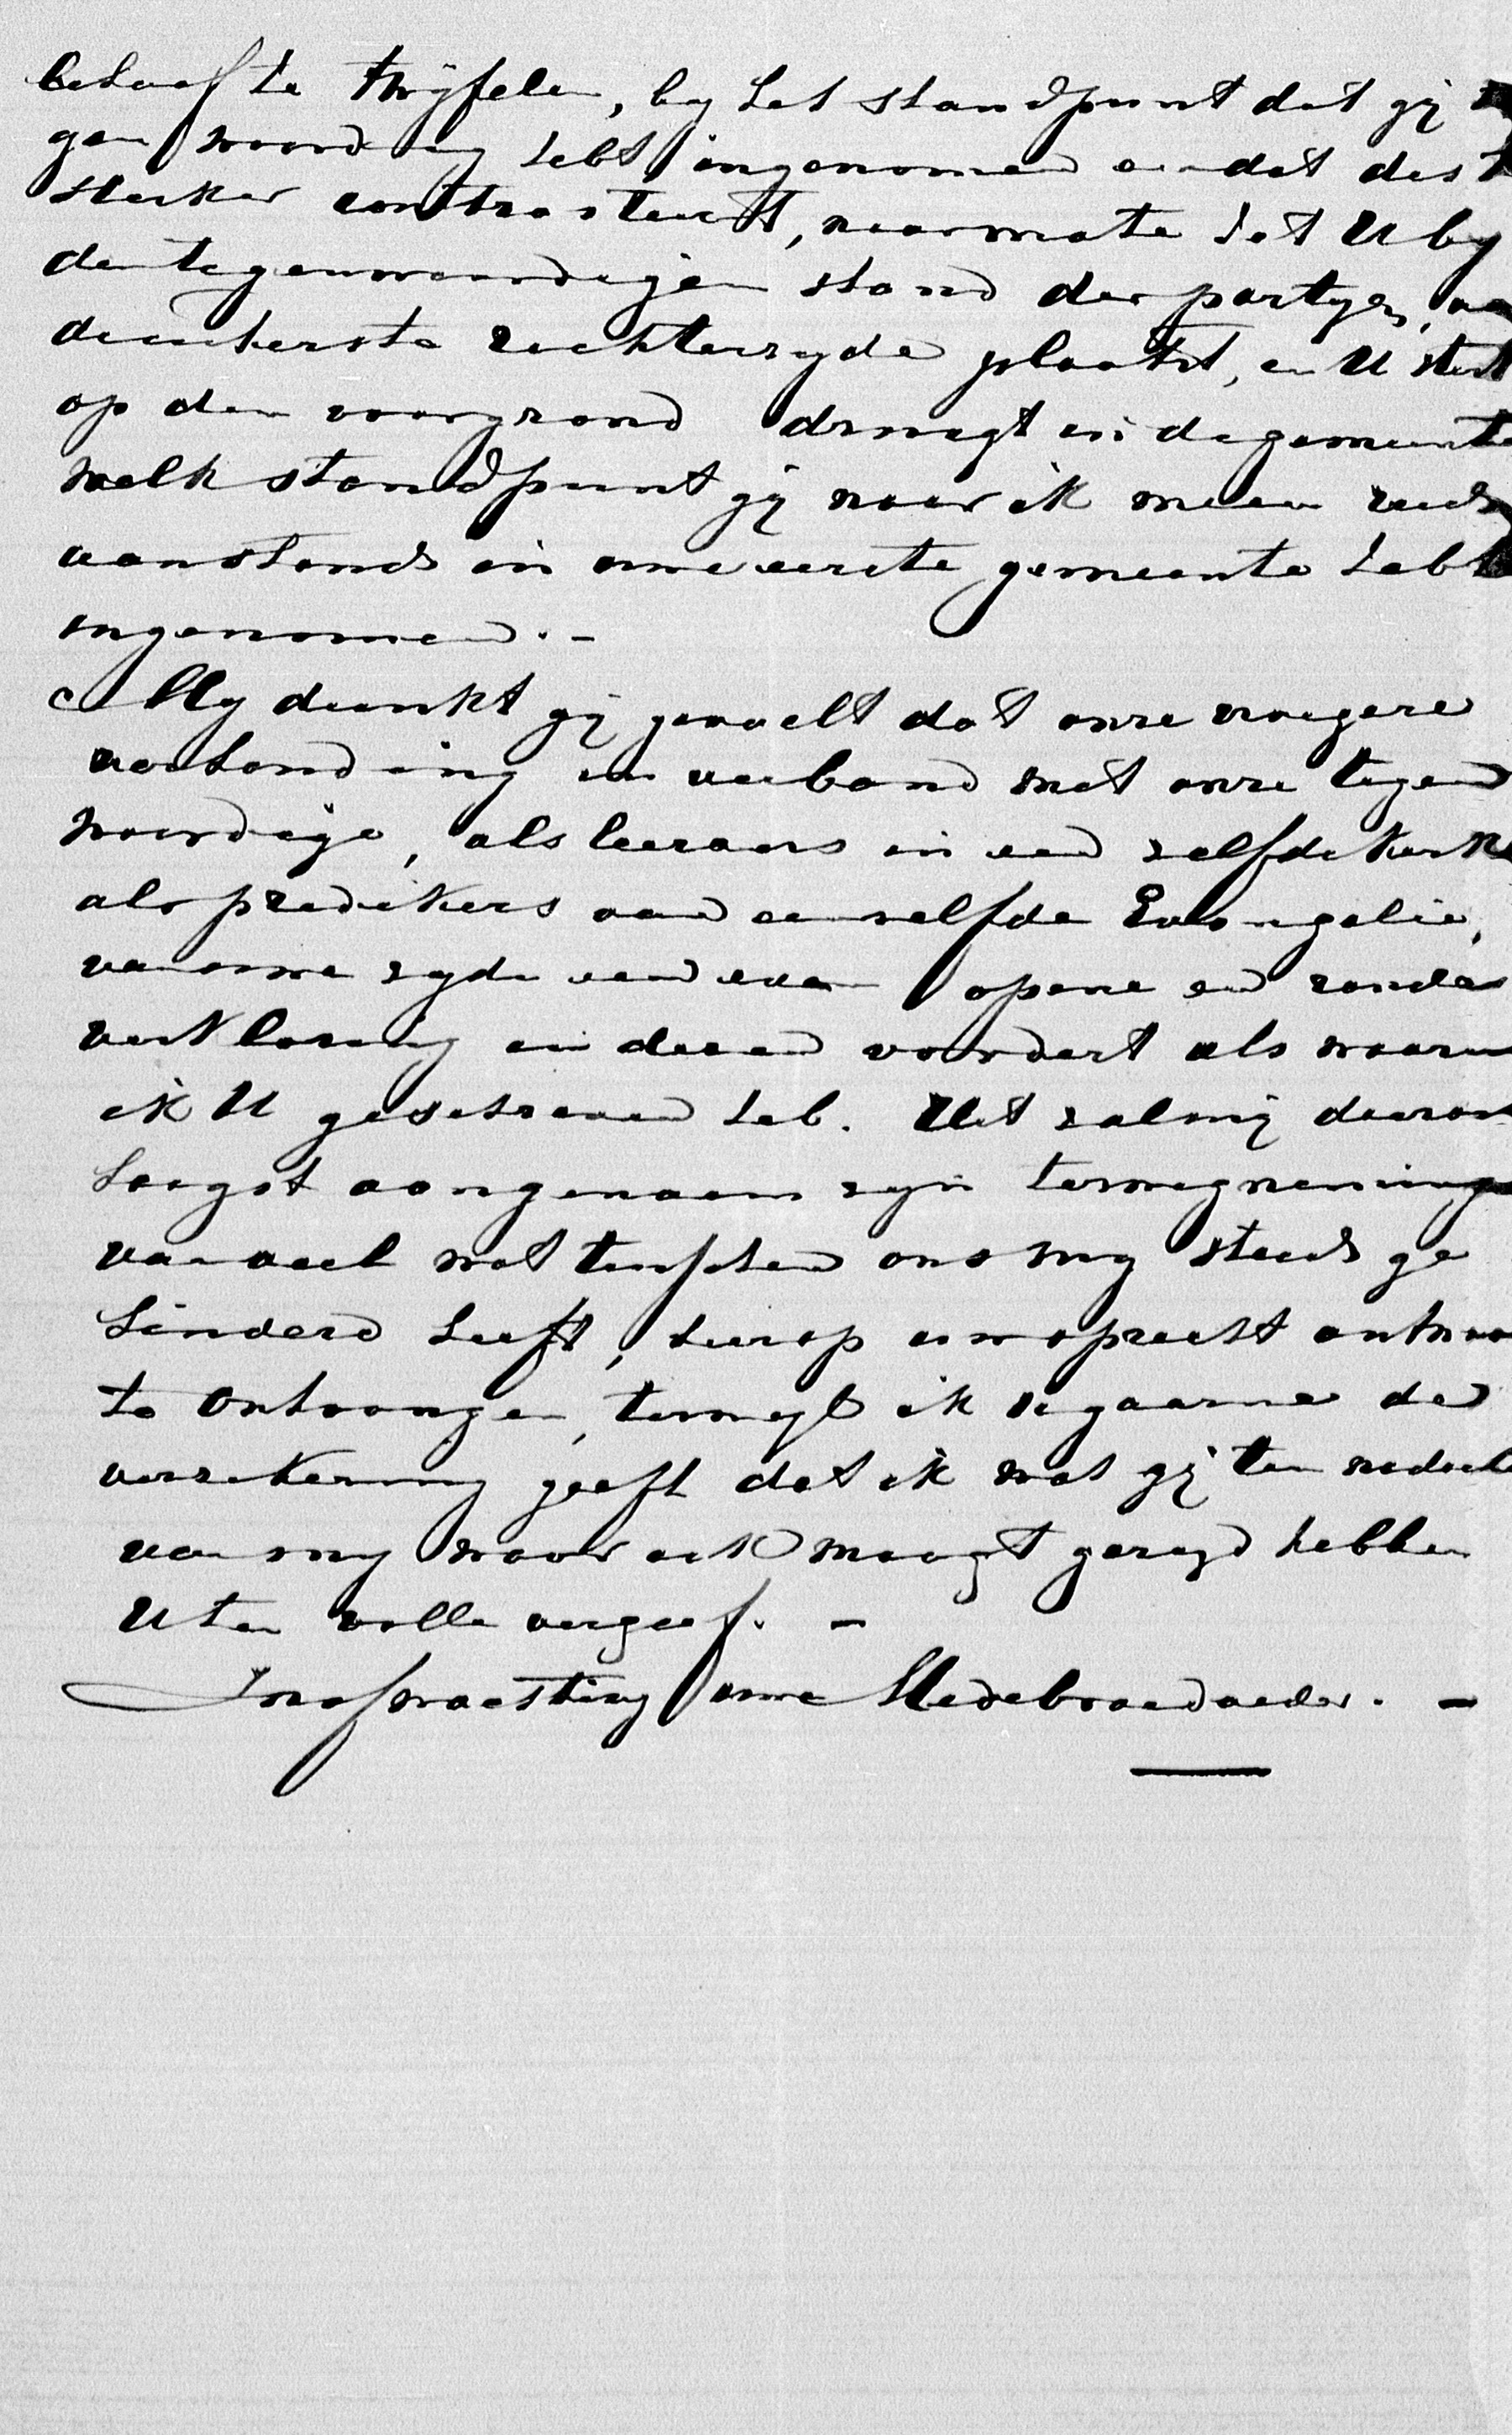 behoef te twijfelen, by het standpunt dat gij
genwoordig hebt ingenomen en dat des te
sterker contrasteert, naarmate het U by
den tegenwoordigen stand der partyen,
de uiterste rechterzyde plaatst, en U sterk
op den voorgrond dringt in de gemeente
welk standpunt gij naar ik meen reeds
aanstonds in uwe eerste gemeente hebt
ingenomen. -
My dunkt gij gevoelt dat onze vroegere
verhouding in verband met onze tegen
woordige, als leeraars in een zelfde kerk
als predikers van eenzelfde Evangelie,
van uwe zyde een even opene en ronde
verklaring in dezen vordert als waarin
ik U geschreven heb. Het zal mij daarom
hoogst aangenaam zyn terwegneming
van veel wat tusschen ons my steeds ge
hinderd heeft, hierop een oprecht antwoo
te ontvangen, terwyl ik U gaarne de
verzekering geeft dat ik wat gij ten nadeele
van my waar ook moogt gezegd hebben
U ten volle vergeef. -
Inafwachting uwe Medebroeder. -